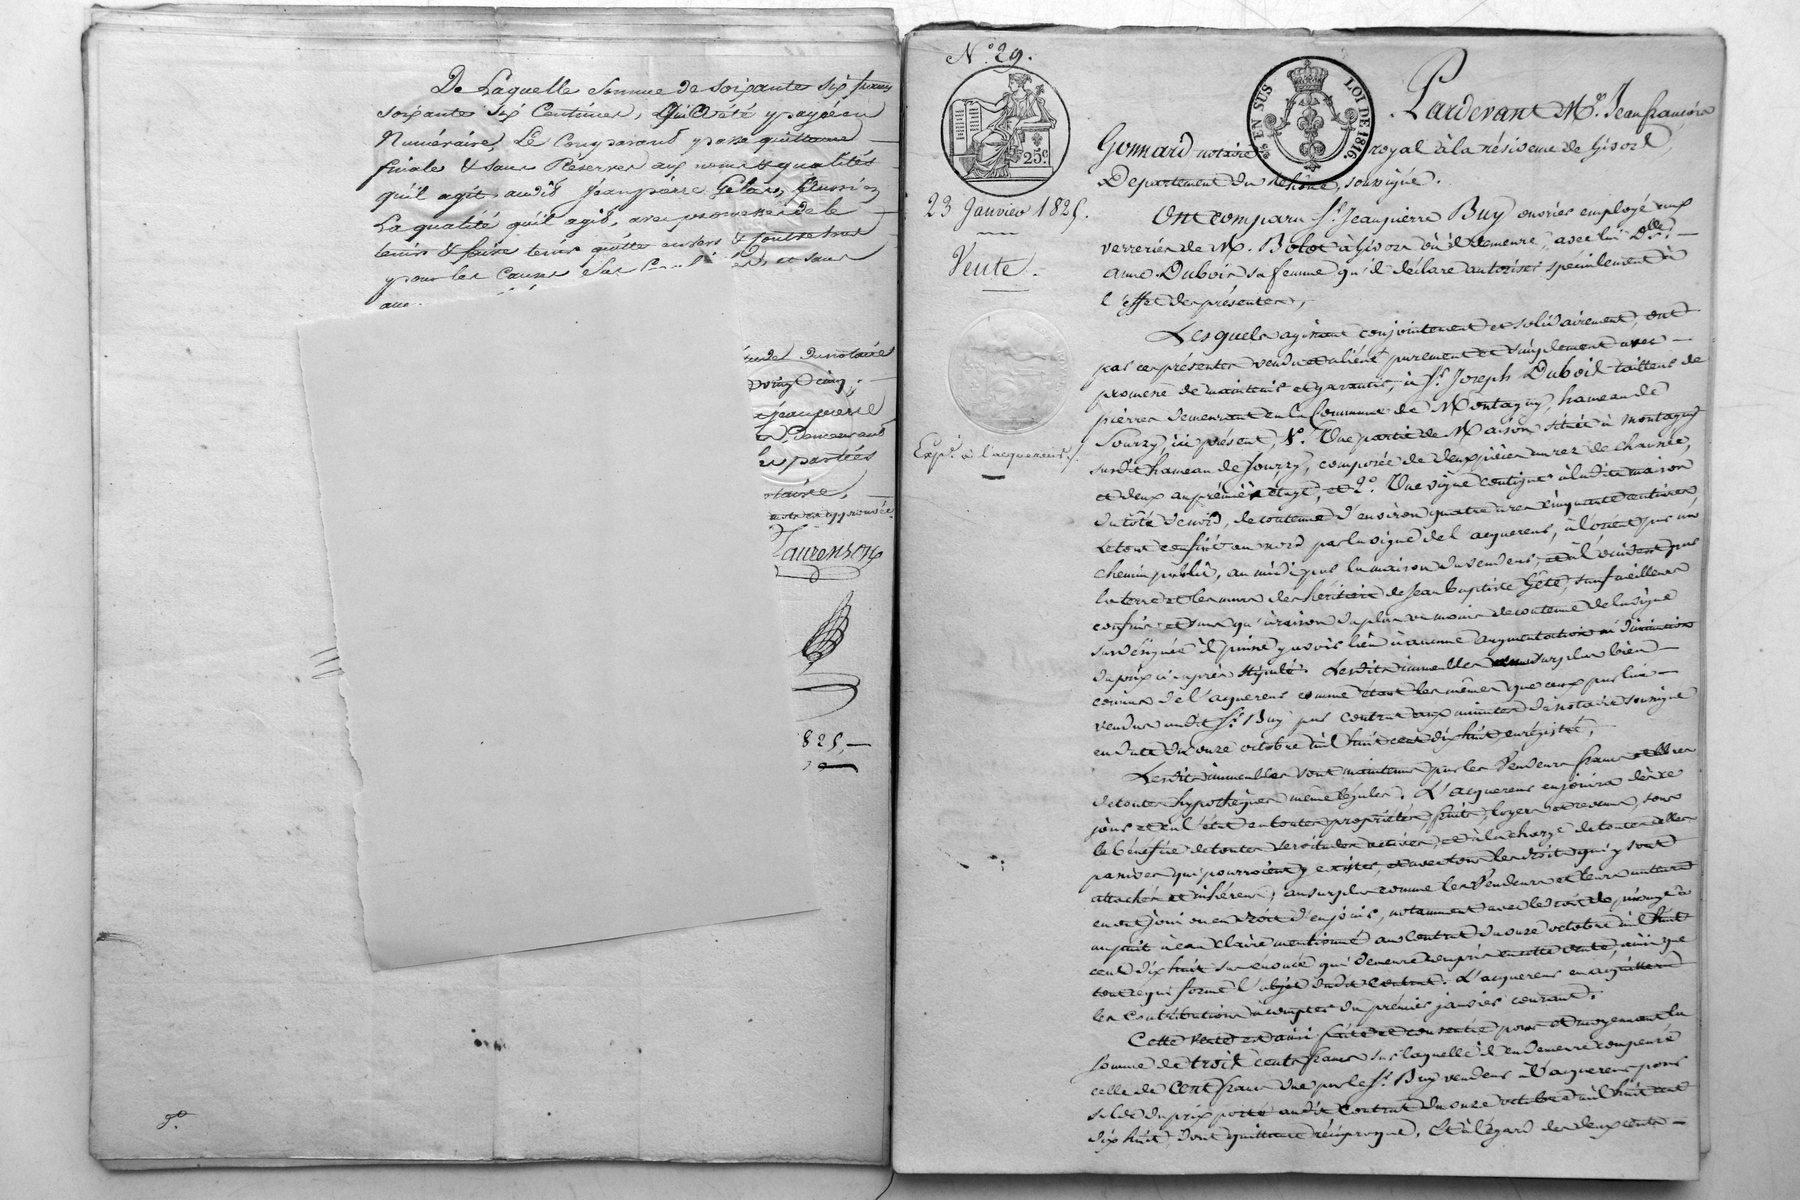 De Laquelle somme de soixante six francs
soixante six Centimes, qui a été payée en
Numéraire, Le Comparant passe quittance
finale & sans Reserves aux noms & qualités
qu'il agit, audit Jeanpierre Gelas,
La qualité qu'il agit, avec promesse de le
tenir & faire tenir quitte envers & contre tous
pour les causes et sans
du notaire
vingt cinq;
Jeanpierre
parties
notaire,
mots approuvés
Laurenson
825
N.° 29.
25c
EN SUS
LOI DE 1816
23 Janvier 1825.
Vente.
Exp.on à l'acquereur.
Pardevant M.e Jean françois
Gonnard notaire royal à la résidence de Givors,
Departement du Rhône, soussigné.
Ont comparu S.r Jeanpierre Buy ouvrier employé aux
verreries de M. Bolot à Givors où il demeure, avec lui D.lle
anne Dubois sa femme qu'il déclare autoriser spécialement à
l'effet des présentes,
Lesquels agissant conjointement et solidairement, ont
par ces présentes vendu et aliéné purement et simplement avec
promesse de maintenir et garantir, à S.r Joseph Duboil tailleur de
pierres demeurant en la Commune de Montagny, hameau de
Sourzy ici présent, 1.° Une partie de Maison située à montagny
susdit hameau de Sourzy, composée de deux pièces au rez de chaussée,
et deux au premier étage, et 2.° Une vigne contigue à ladite maison
du côté du nord, de contenue d'environ quatre ares cinquante centiares,
le tout confiné au nord par la vigne de l'acquereur, à l'orient par un
chemin public, au midi par la maison du vendeur, et à l'occident par
la terre et les murs des héritiers de Jean Baptiste Gête, sauf meilleurs
confins et sans qu'à raison du plus ou moins de contenue de la vigne
sus désignée il puisse y avoir lieu à aucune augmentation ni diminution
du prix ci après stipulé. Lesdits immeubles au surplus bien
connus de l'acquereur comme étant les mêmes que ceux par lui
vendus audit S.r Buy par contrat aux minutes du notaire soussigné
en date du onze octobre mil huit cent dix huit enregistré,
Lesdits immeubles sont maintenus par les Vendeurs francs et libres
de toutes hypothèques même légales. L'acquereur en jouira dès ce
jour et en l'état en toutes propriétés, fruits, loyers et revenus, sous
le bénéfice de toutes servitudes actives, et à la charge de toutes celles
passives qui pourroient y exister, et avec tous les droits qui y sont
attachés et inhérens, au surplus comme les Vendeurs et leurs auteurs
en ont joui ou eu droit d'en jouir, notamment avec le droit de puisage à
un puit à eau claire mentionné au Contrat du onze octobre mil huit
cent dix huit sus énoncé qui demeure compris en cette vente, ainsi que
tout ce qui forme l'objet dudit Contrat. L'acquereur en acquittera
les Contributions à compter du premier janvier courant.
Cette vente est ainsi faite et consentie pour et moyennant la
somme de trois cents francs sur laquelle il en demeure compensé
celle de Cent francs due par le S.r Buy vendeur à l'acquereur pour
solde du prix porté audit Contrat du onze octobre mil huit cent
dix huit, dont quittance réciproque. Et à l'égard des deux cents